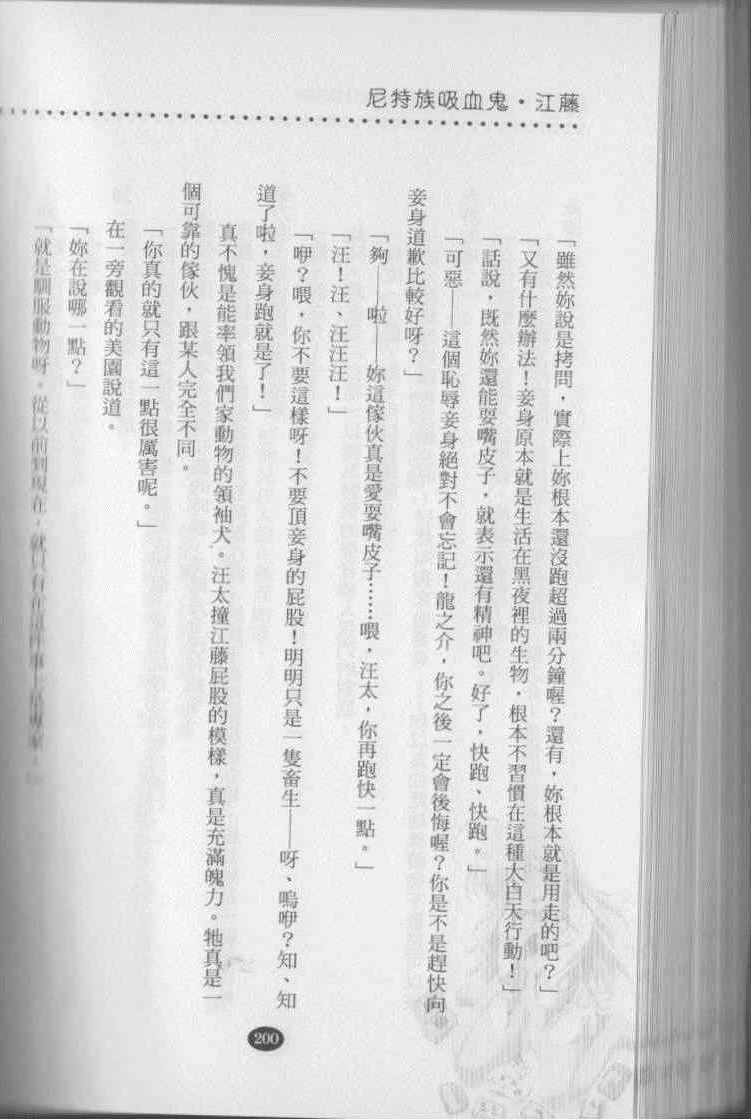 尼特族吸血鬼・江藤
「雖然妳說是拷問，實際上妳根本還沒跑超過兩分鐘喔？還有，妳根本就是用走的吧？」
「又有什麼辦法！妾身原本就是生活在黑夜裡的生物，根本不習慣在這種大白天行動！」
「話說，既然妳還能耍嘴皮子，就表示還有精神吧。好了，快跑、快跑。」
「可惡——這個恥辱妾身絕對不會忘記！龍之介，你之後一定會後悔喔？你是不是趕快向
妾身道歉比較好呀？」
「夠——啦——妳這傢伙真是愛耍嘴皮子……喂，汪太，你再跑快一點。」
「汪！汪、汪汪汪！」
「咿？喂，你不要這樣呀！不要頂妾身的屁股！明明只是一隻畜生——呀、嗚咿？知、知
道了啦，妾身跑就是了！」
真不愧是能率領我們家動物的領袖犬。汪太撞江藤屁股的模樣，真是充滿魄力。牠真是一
個可靠的傢伙，跟某人完全不同。
「你真的就只有這一點很厲害呢。」
在一旁觀看的美園說道。
「妳在說哪一點？」
「就是馴服動物呀。從以前到現在，就只有
200